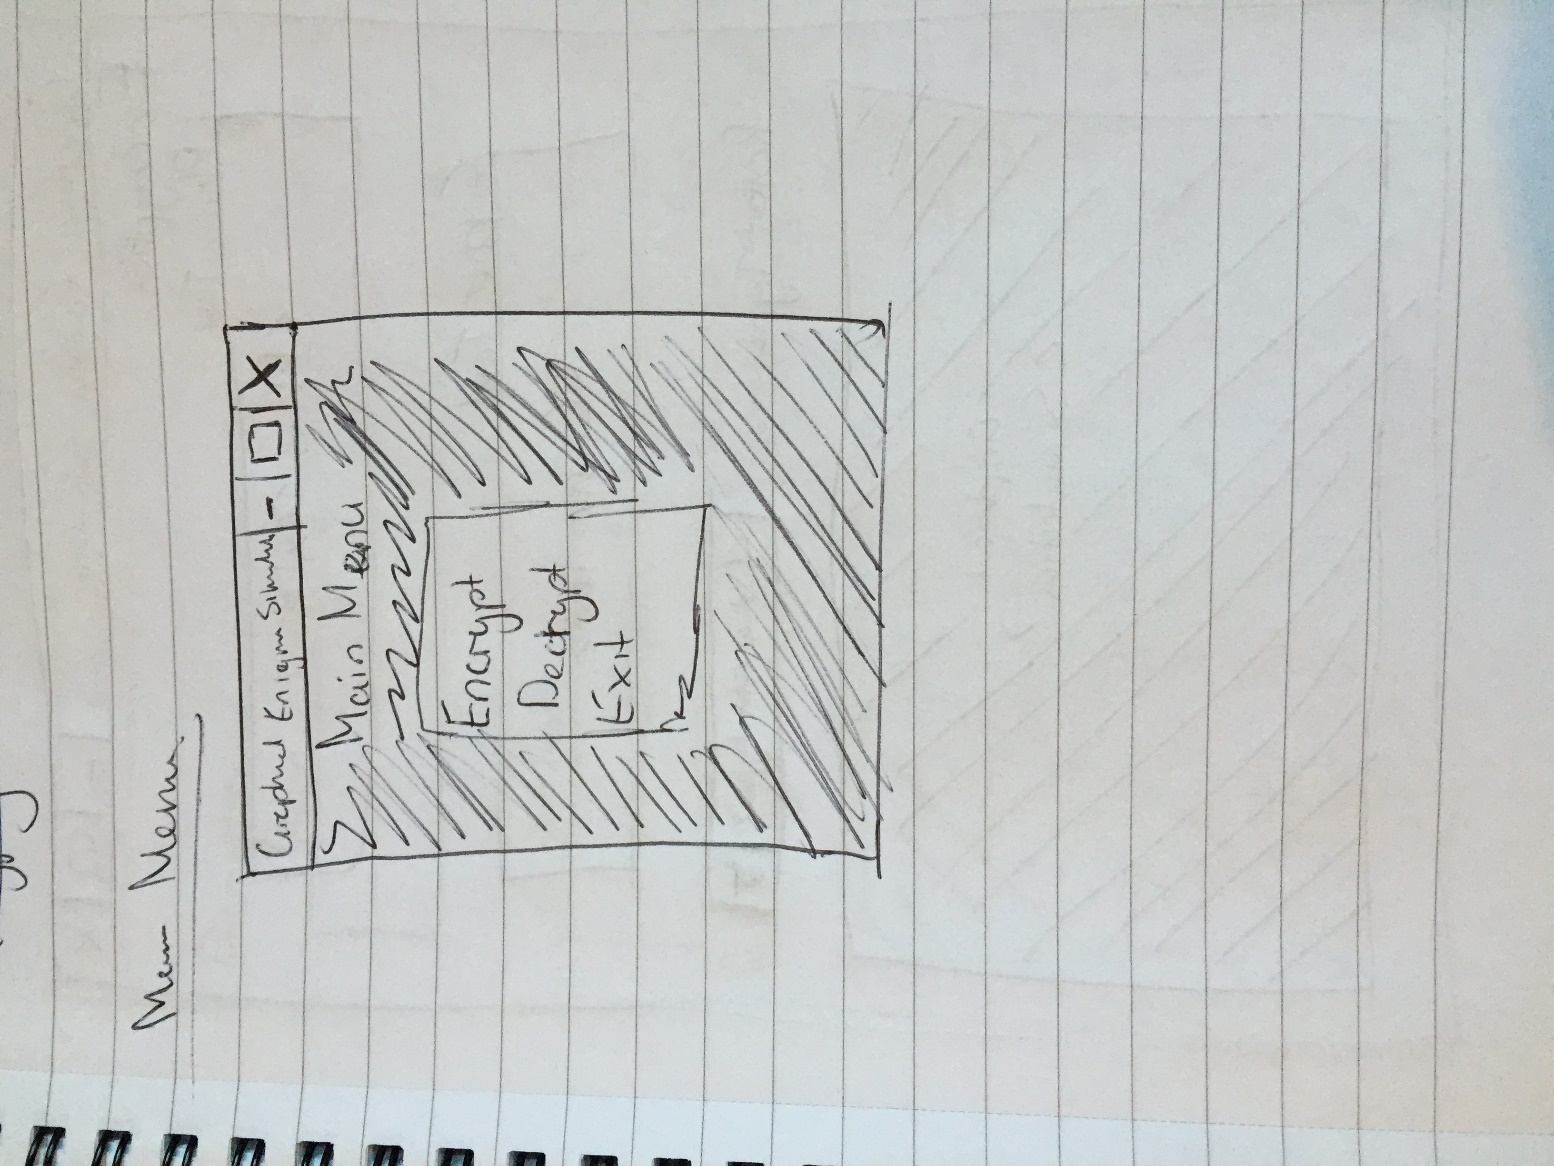 Main Menu
Graphical Enigma Simulator - □ X
Main Menu
Encrypt
Decrypt
Exit